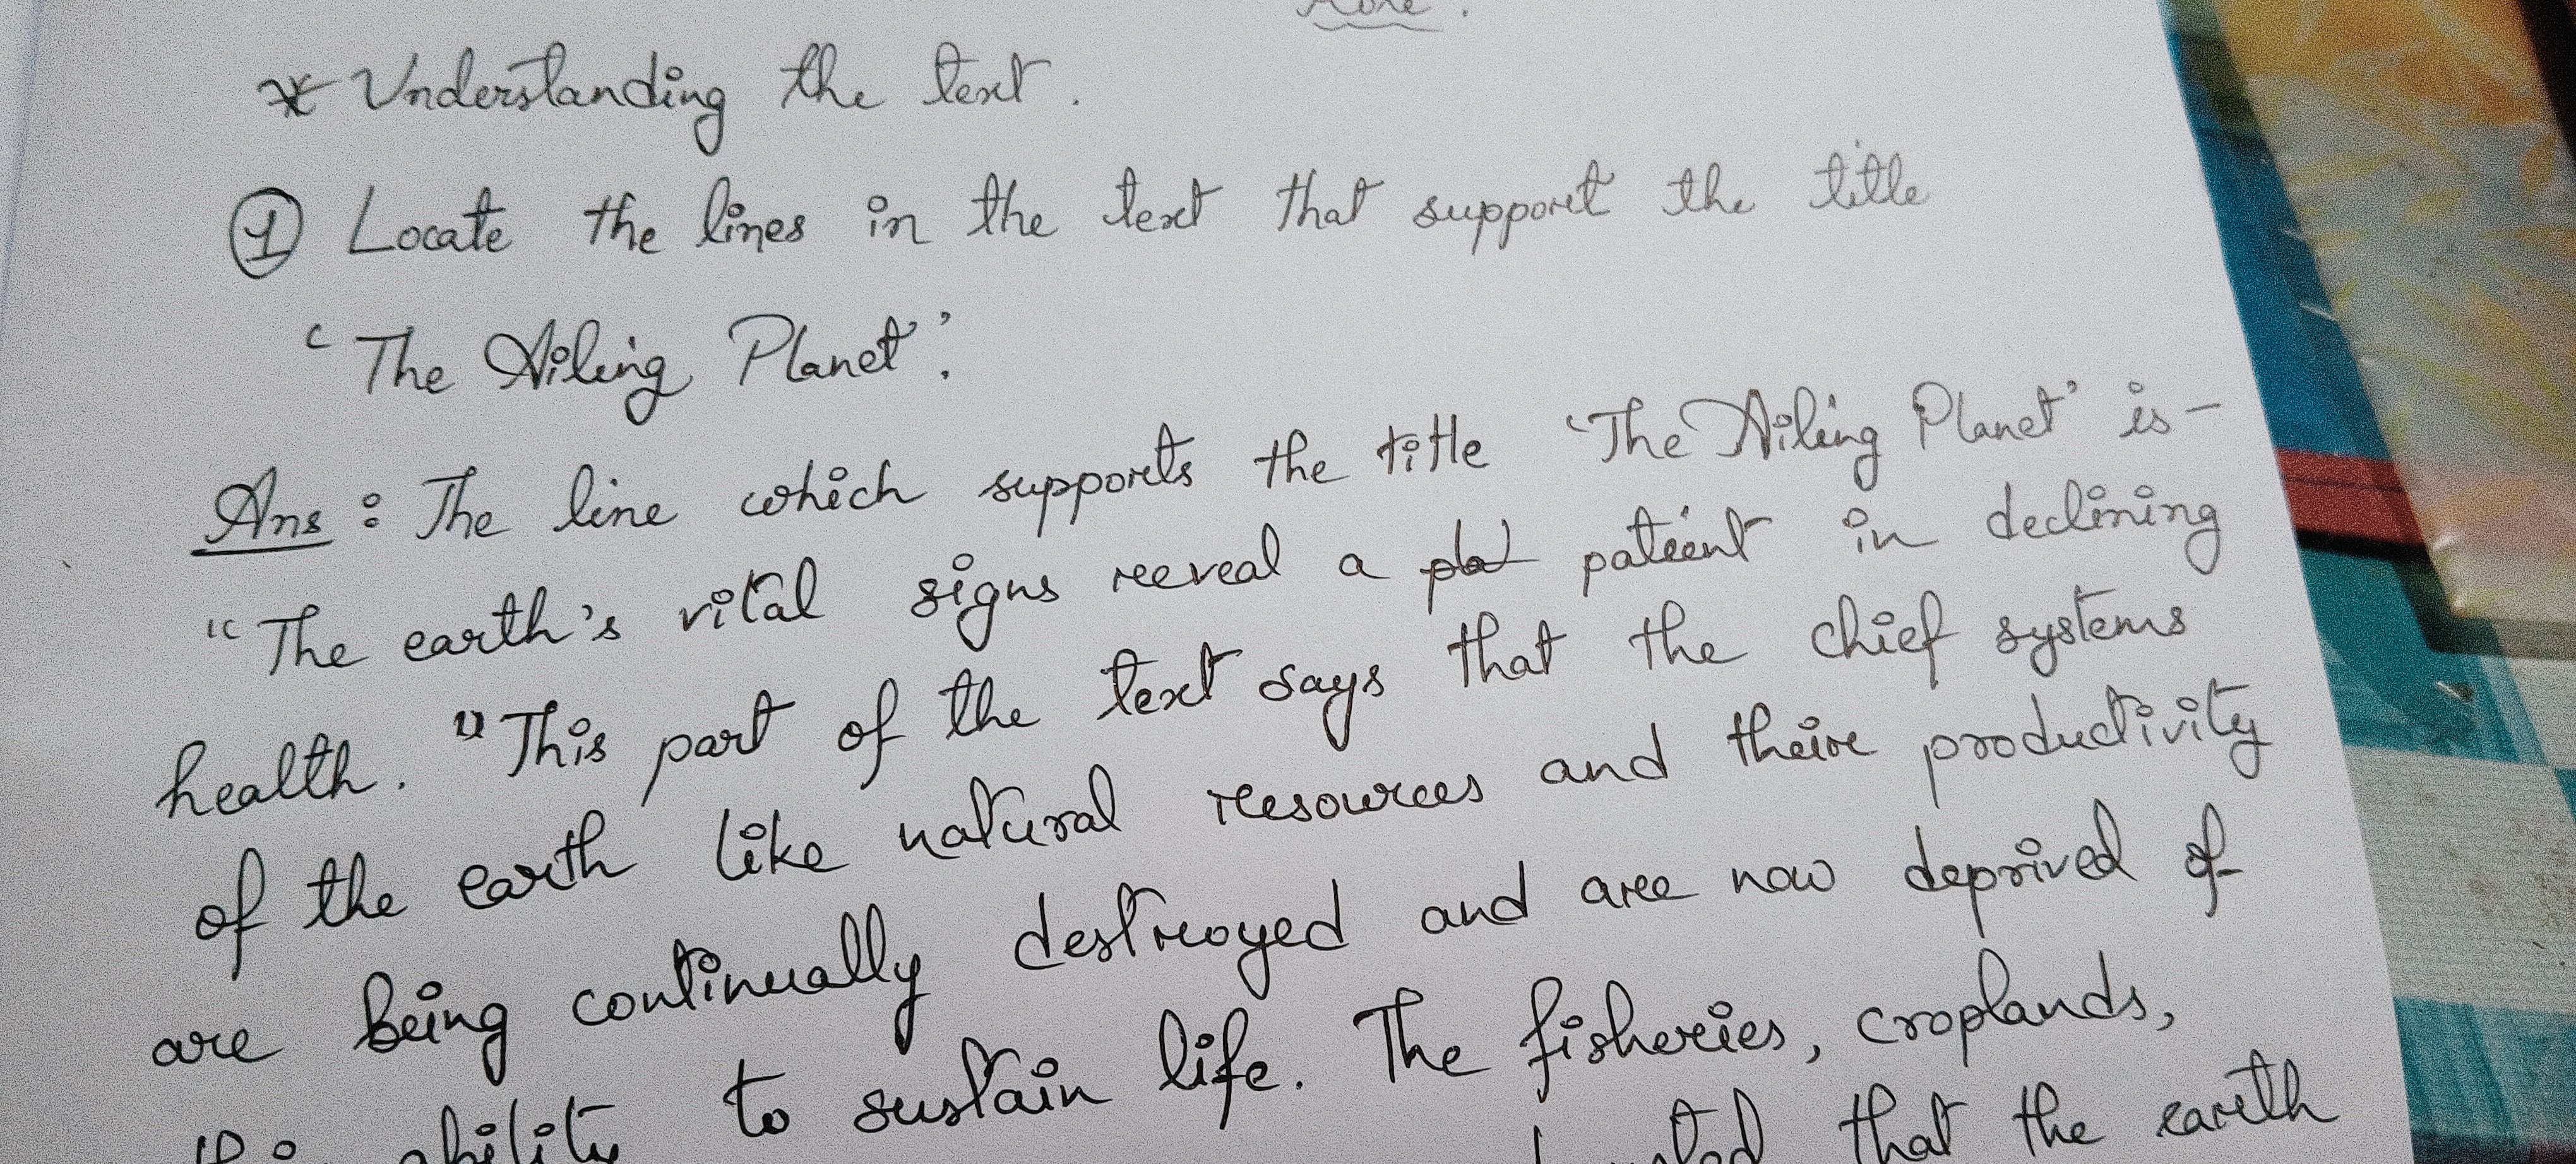 * Understanding the text.
① Locate the lines in the text that support the title
'The Ailing Planet'.
Ans : The line which supports the title 'The Ailing Planet' is-
"The earth's vital signs reveal a patient in declining
health. "This part of the text says that the chief systems
of the earth like natural resources and their productivity
are being continually destroyed and are now deprived of
ability to sustain life. The fisheries, croplands,
that the earth